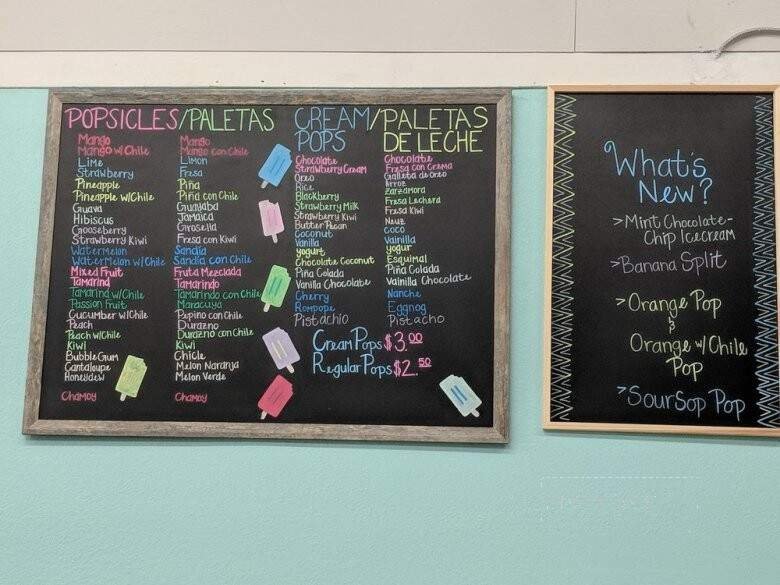 POPSICLES/PALETAS
Mango
Mango w/Chile
Lime
Strawberry
Pineapple
Pineapple w/Chile
Guava
Hibiscus
Gooseberry
Strawberry Kiwi
Watermelon
Watermelon w/Chile
Mixed Fruit
Tamarind
Tamarind w/Chile
Passion Fruit
Cucumber w/Chile
Peach
Peach w/Chile
Kiwi
BubbleGum
Cantaloupe
Honeydew
Chamoy
Mango
Mango con Chile
Limon
Fresa
Piña
Piña con Chile
Guayaba
Jamaica
Grosella
Fresa con Kiwi
Sandia
Sandia con Chile
Fruta Mezclada
Tamarindo
Tamarindo con Chile
Maracuya
Pepino con Chile
Durazno
Durazno con Chile
Kiwi
Chicle
Melon Naranja
Melon Verde
Chamoy
CREAM/PALETAS
POPS DE LECHE
Chocolate
Strawberry Cream
Oreo
Rice
Blackberry
Strawberry Milk
Strawberry Kiwi
Butter Pecan
Coconut
Vanilla
yogurt
Chocolate Coconut
Piña Colada
Vanilla Chocolate
Cherry
Rompope
Pistachio
Chocolate
Fresa con Crema
Galleta de Oreo
Arroz
Zarzamora
Fresa Lechera
Fresa Kiwi
Nuez
coco
Vainilla
yogur
Esquimal
Piña Colada
Vainilla Chocolate
Nanche
Eggnog
Pistacho
Cream Pops $3.00
Regular Pops $2.50
What's
New?
>Mint Chocolate-
Chip Icecream
>Banana Split
>Orange Pop
&
Orange w/Chile
Pop
>SourSop Pop